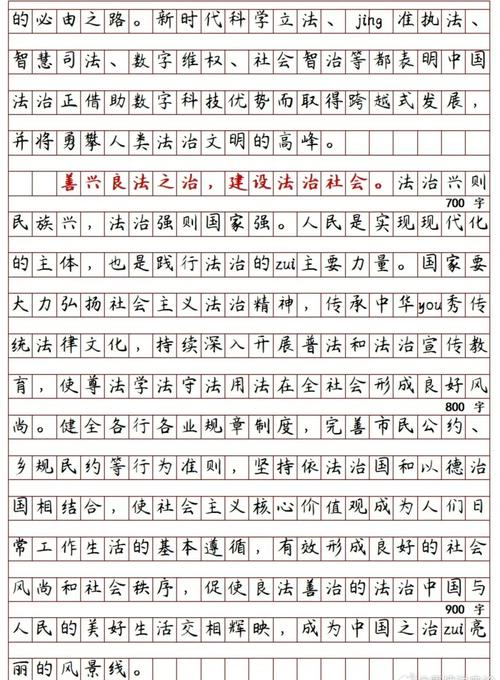 的必由之路。新时代科学立法、jing准执法、
智慧司法、数字维权、社会智治等都表明中国
法治正借助数字科技优势而取得跨越式发展，
并将勇攀人类法治文明的高峰。
善兴良法之治，建设法治社会。法治兴则
700 字
民族兴，法治强则国家强。人民是实现现代化
的主体，也是践行法治的zui主要力量。国家要
大力弘扬社会主义法治精神，传承中华you秀传
统法律文化，持续深入开展普法和法治宣传教
育，使尊法学法守法用法在全社会形成良好风
800 字
尚。健全各行各业规章制度，完善市民公约、
乡规民约等行为准则，坚持依法治国和以德治
国相结合，使社会主义核心价值观成为人们日
常工作生活的基本遵循，有效形成良好的社会
风尚和社会秩序，促使良法善治的法治中国与
900 字
人民的美好生活交相辉映，成为中国之治zui亮
丽的风景线。